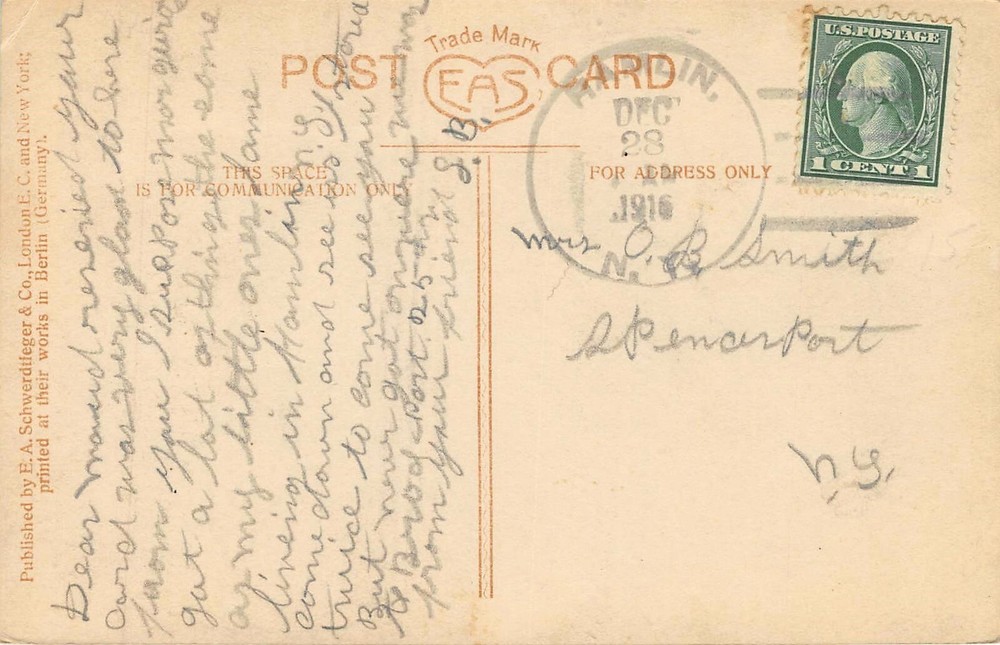 Published by E. A. Schwerdtfeger & Co., London E. C. and New York;
printed at their works in Berlin (Germany).
POST CARD
Trade Mark
EAS
THIS SPACE
IS FOR COMMUNICATION ONLY
FOR ADDRESS ONLY
HAMLIN,
DEC
28
1916
N.Y.
U.S. POSTAGE
1 CENT 1
Dear maud received your
Card was very glad to here
from you I supose morgurie
got a lot of things the same
as my little ones I ame
liveing in Hamlin N.Y
come down and see us I tried
twice to come see you
But never got only were
to Brockport 25
from your friend
L. B.
Mrs O B Smith
Spencerport
N.Y.